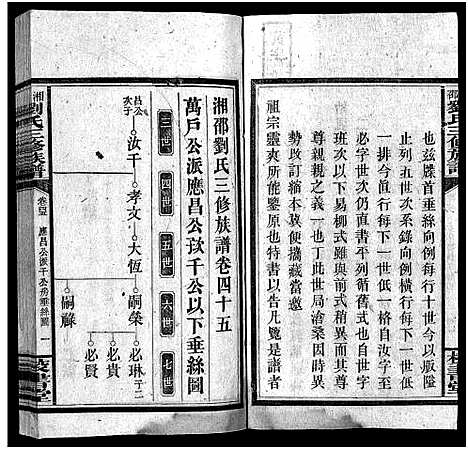 劉氏三修族譜
也茲牒首垂絲向例每行十世今以版隘
止列五世次系錄向例橫行而每世低
一排今眞行每下一世低一格自汝字至
必字世次仍直書平列循舊式也自世字
班次以下易柳式雖與前式稍異而其尊
尊親親之義一也丁此世局滄桑刊刷
勢故改訂縮本裝俾便攜藏當邀
祖宗靈爽所能鑒原也特書以告凡覽是譜者
湘邵劉氏三修族譜卷四十五
萬戶公派應昌公孜千公以下垂絲圖
三世 四世 五世 六世 七世
昌公次子 汝千 孝文 大恆 嗣榮 必琳 子二
必貴
必賢
嗣祿
湘
劉氏三修族譜
應昌公派千公房垂絲圖
一